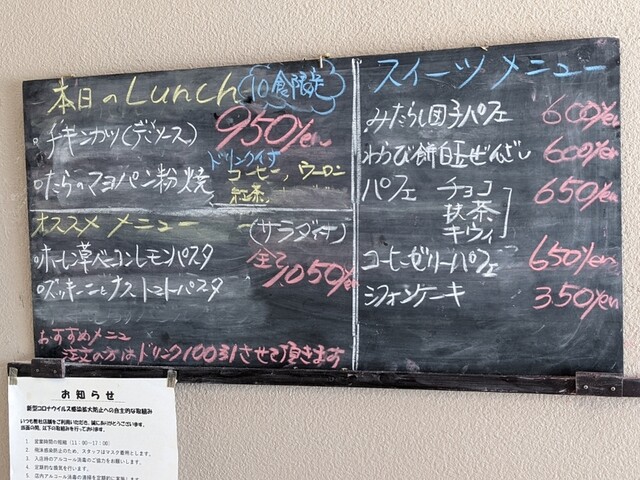 本日のLunch 10食限定
・チキンカツ(デミソース) 950yen
・たらのマヨパン粉焼
ドリンク付
コーヒー、ウーロン
紅茶
オススメメニュー (サラダ付)
・ホーレン草ベーコンレモンパスタ 全て1050yen
・ズッキーニとナストマトパスタ
おすすめメニュー
注文の方はドリンク100引させて頂きます
スイーツメニュー
みたらし団子パフェ 600yen
わらび餅白玉ぜんざい 600yen
パフェ チョコ 650yen
抹茶
キウイ
コーヒーゼリーパフェ 650yen
シフォンケーキ 350yen
お知らせ
新型コロナウイルス感染拡大防止への自主的な取組み
いつも弊社店舗をご利用いただき、誠にありがとうございます。
当面の間、以下の取組みを行っております。
1. 営業時間の短縮(11:00~17:00)
2. 飛沫感染防止のため、スタッフはマスク着用とします。
3. 入店時のアルコール消毒のご協力をお願いします。
4. 定期的な換気を行います。
5. 店内アルコール消毒の清掃を定期的に実施し